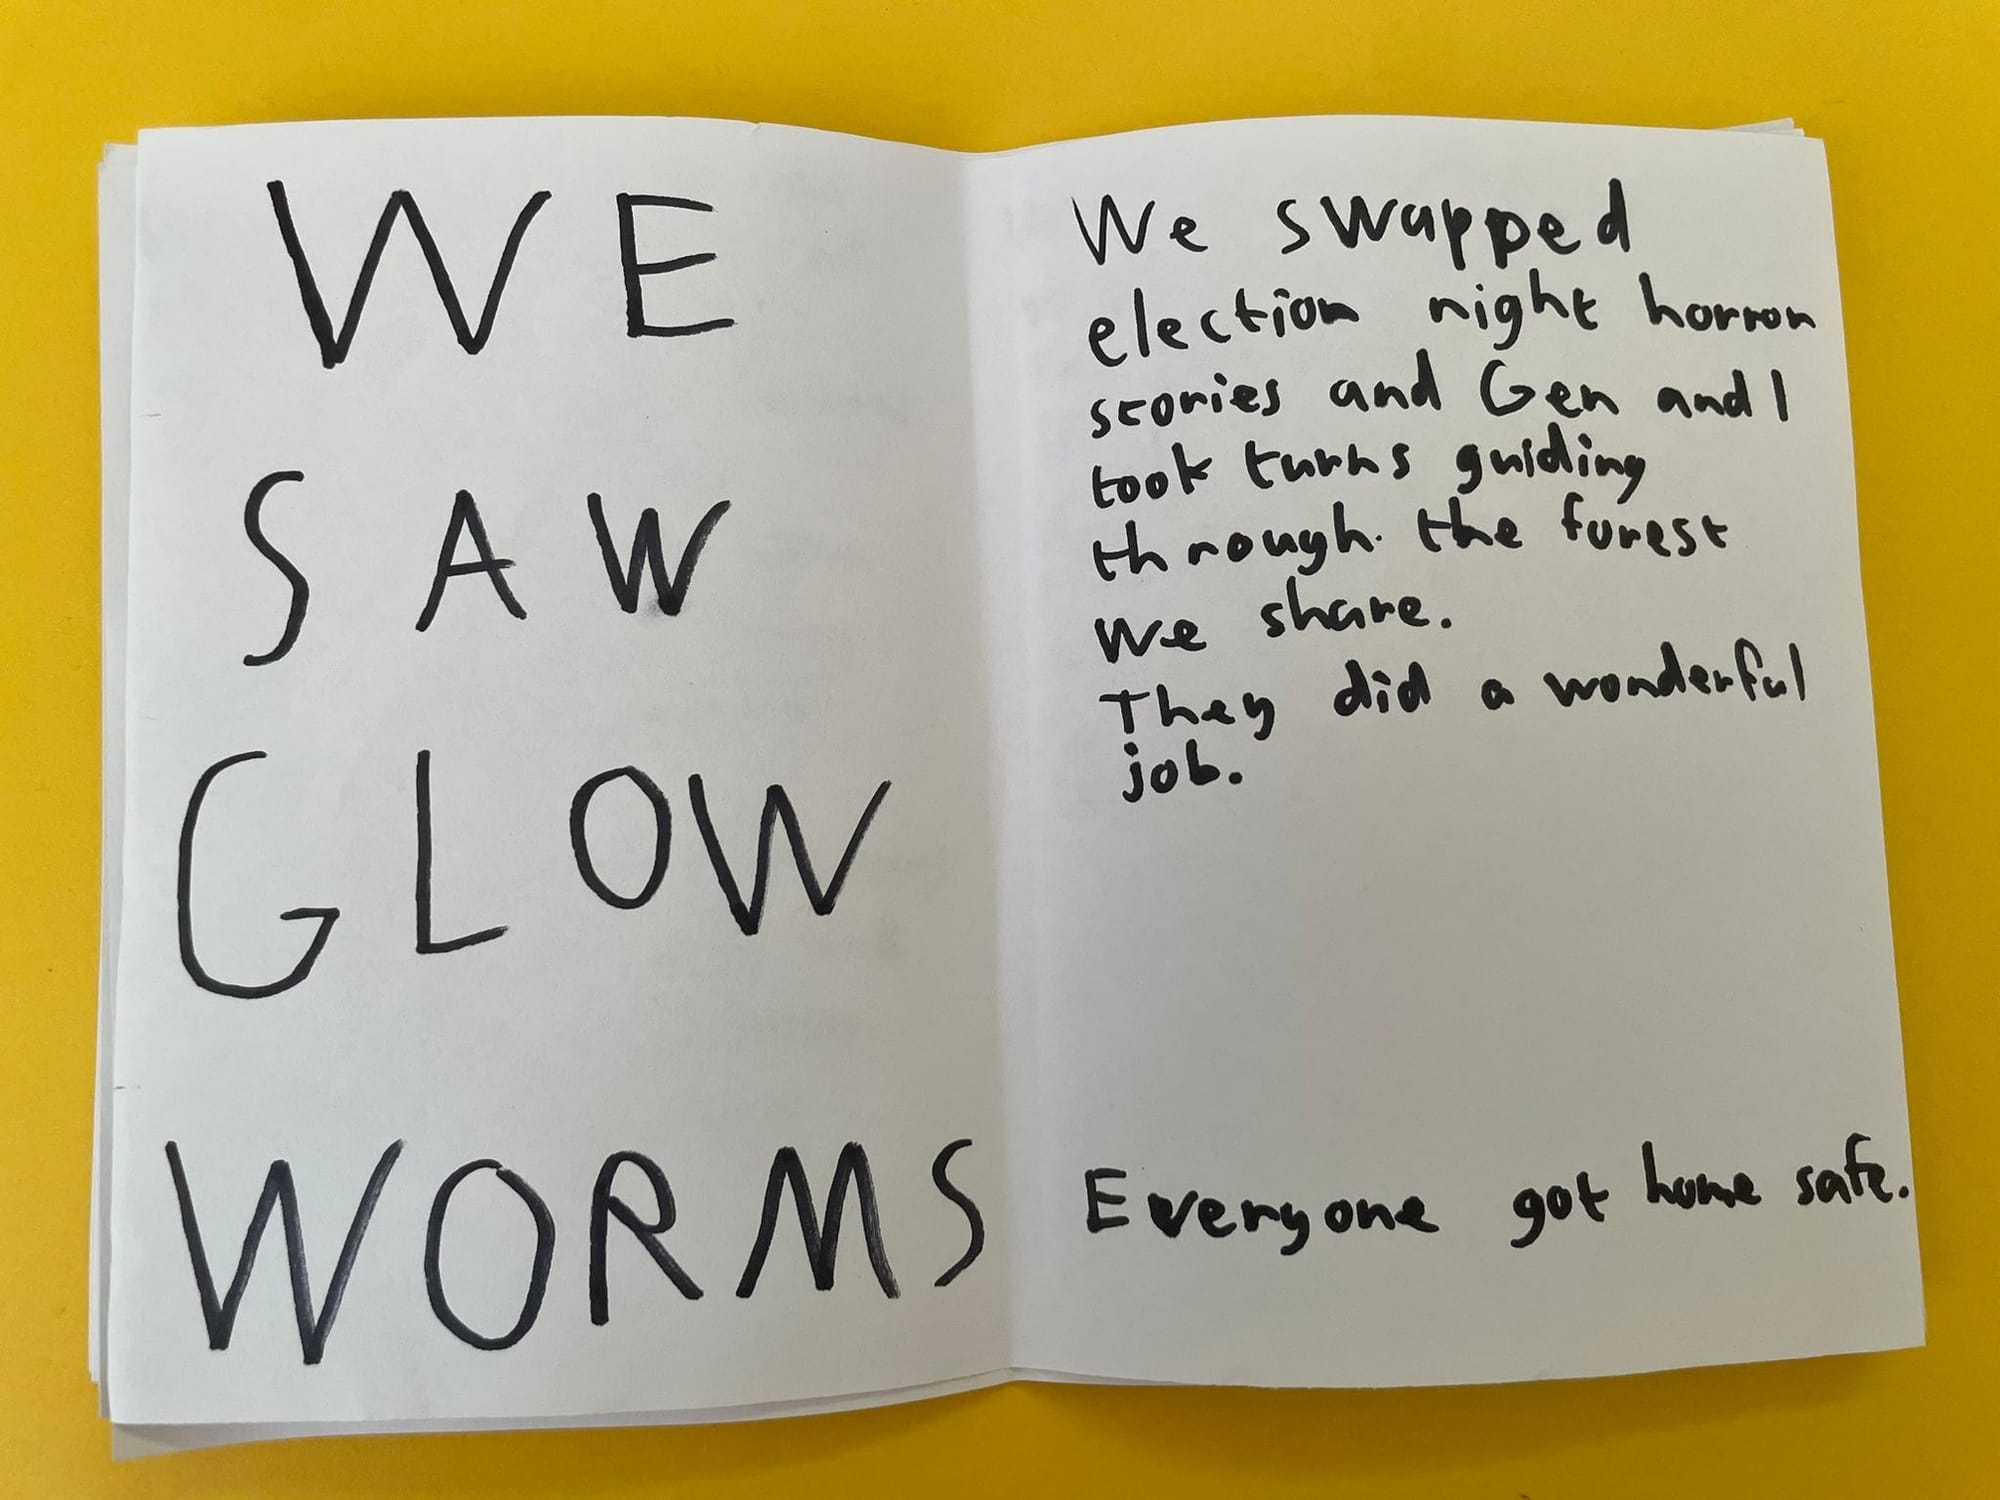 WE
SAW
GLOW
WORMS
We swapped
election night horror
stories and Gen and I
took turns guiding
through. the forest
we share.
They did a wonderful
job.
Everyone got home safe.